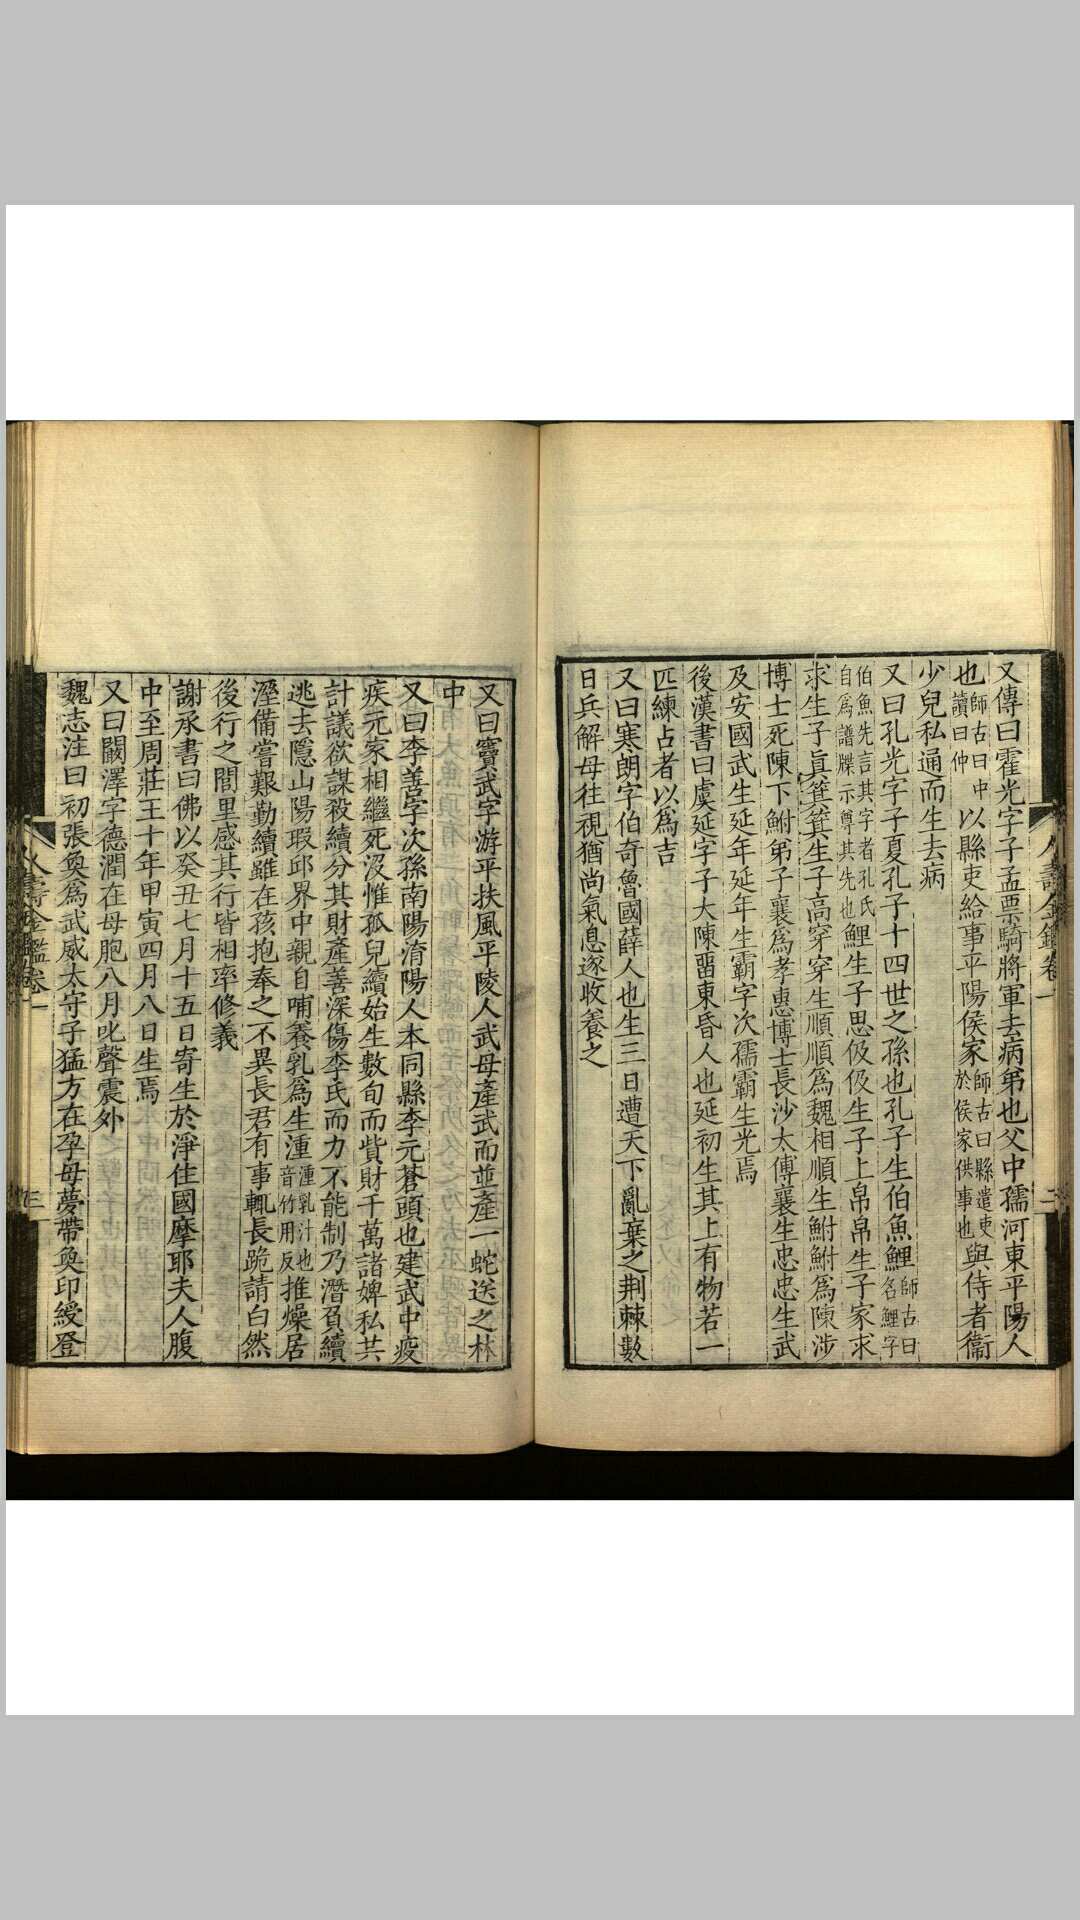 又傳曰霍光字子孟票騎將軍去病弟也父中孺河東平陽人
也師古曰中讀曰仲以縣吏給事平陽侯家師古曰縣遣吏於侯家供事也與侍者衞
少兒私通而生去病
又曰孔光字子夏孔子十四世之孫也孔子生伯魚鯉師古曰名鯉字
伯魚先言其字者孔氏自爲譜牒示尊其先也鯉生子思伋伋生子上帛帛生子家求
求生子眞箕箕生子高穿穿生順順爲魏相順生鮒鮒爲陳涉
博士死陳下鮒弟子襄爲孝惠博士長沙太傅襄生忠忠生武
及安國武生延年延年生霸字次孺霸生光焉
後漢書曰虞延字子大陳畱東昏人也延初生其上有物若一
匹練占者以爲吉
又曰寒朗字伯奇魯國薛人也生三日遭天下亂棄之荆棘數
日兵解母往視猶尚氣息遂收養之
人壽金鑑卷一
二
又曰竇武字游平扶風平陵人武母產武而並產一蛇送之林
中
又曰李善字次孫南陽淯陽人本同縣李元蒼頭也建武中疫
疾元家相繼死沒惟孤兒續始生數旬而貲財千萬諸婢私共
計議欲謀殺續分其財產善深傷李氏而力不能制乃潛負續
逃去隱山陽瑕邱界中親自哺養乳爲生湩湩乳汁也音竹用反推燥居
溼備嘗艱勤續雖在孩抱奉之不異長君有事輒長跪請白然
後行之閭里感其行皆相率修義
謝承書曰佛以癸丑七月十五日寄生於淨住國摩耶夫人腹
中至周莊王十年甲寅四月八日生焉
又曰闞澤字德潤在母胞八月叱聲震外
魏志注曰初張奐爲武威太守子猛方在孕母夢帶奐印綬登
人壽金鑑卷一
三